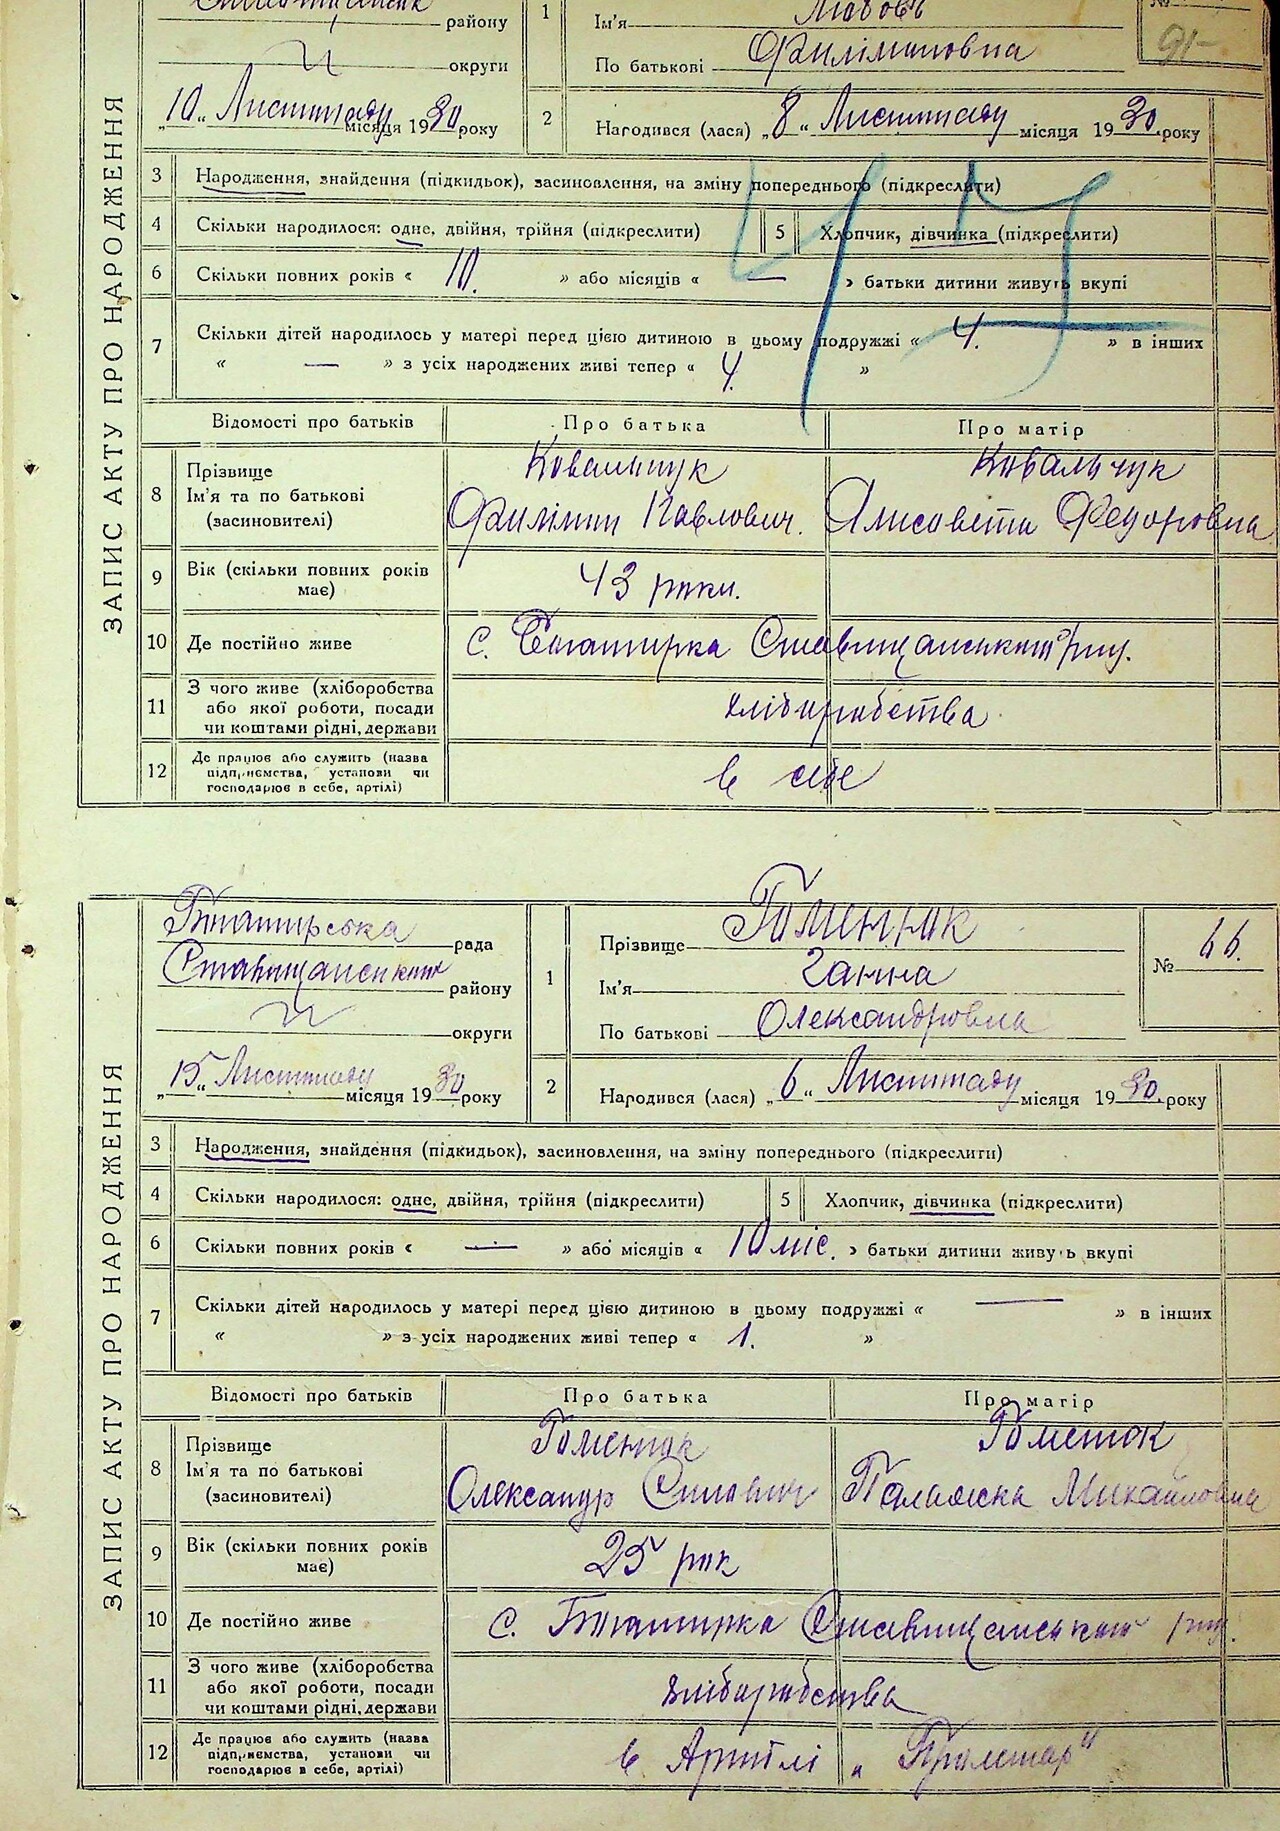 району
№
Ім'я Любовь
91-
округи
По батькові Филімоновна
„10" Листопаду місяця 1930 року
2 Народився (лася) „8" Листопаду місяця 1930. року
ЗАПИС АКТУ ПРО НАРОДЖЕННЯ
3 Народження, знайдення (підкидьок), засиновлення, на зміну попереднього (підкреслити)
4 Скільки народилося: одне, двійня, трійня (підкреслити) 5 Хлопчик, дівчинка (підкреслити)
6 Скільки повних років « 10. » або місяців « — » батьки дитини живуть вкупі
7 Скільки дітей народилось у матері перед цією дитиною в цьому подружжі « 4. » в інших
« — » з усіх народжених живі тепер « 4. »
Відомості про батьків Про батька Про матір
8 Прізвище Ковальчук Ковальчук
Ім'я та по батькові Филімон Павлович. Алисовета Федоровна
(засиновителі)
9 Вік (скільки повних років має) 43 роки.
10 Де постійно живе с. Богатирка Ставищанського р-ну.
11 З чого живе (хліборобства або якої роботи, посади чи коштами рідні, держави хліборобства
12 Де працює або служить (назва підприємства, установи чи господарює в себе, артілі) в себе
ЗАПИС АКТУ ПРО НАРОДЖЕННЯ
Богатирська рада
Ставищанського району
округи
„15" Листопаду місяця 1930 року
1 Прізвище Гоменюк
№ 66.
Ім'я Ганна
По батькові Олександровна
2 Народився (лася) „6" Листопаду місяця 1930. року
3 Народження, знайдення (підкидьок), засиновлення, на зміну попереднього (підкреслити)
4 Скільки народилося: одне, двійня, трійня (підкреслити) 5 Хлопчик, дівчинка (підкреслити)
6 Скільки повних років « — » або місяців « 10 міс. » батьки дитини живуть вкупі
7 Скільки дітей народилось у матері перед цією дитиною в цьому подружжі « — » в інших
« » з усіх народжених живі тепер « 1. »
Відомості про батьків Про батька Про матір
8 Прізвище Гоменюк Гоменюк
Ім'я та по батькові Олександр Силович Палажка Михайловна
(засиновителі)
9 Вік (скільки повних років має) 25 рок
10 Де постійно живе с. Богатирка Ставищанського р-ну.
11 З чого живе (хліборобства або якої роботи, посади чи коштами рідні, держави хліборобства
12 Де працює або служить (назва підприємства, установи чи господарює в себе, артілі) в Артілі